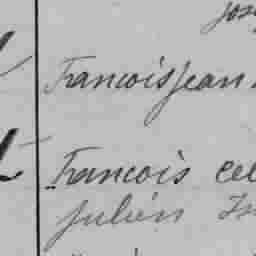 Jos
Francois Jean
Francois Cel
Julien In